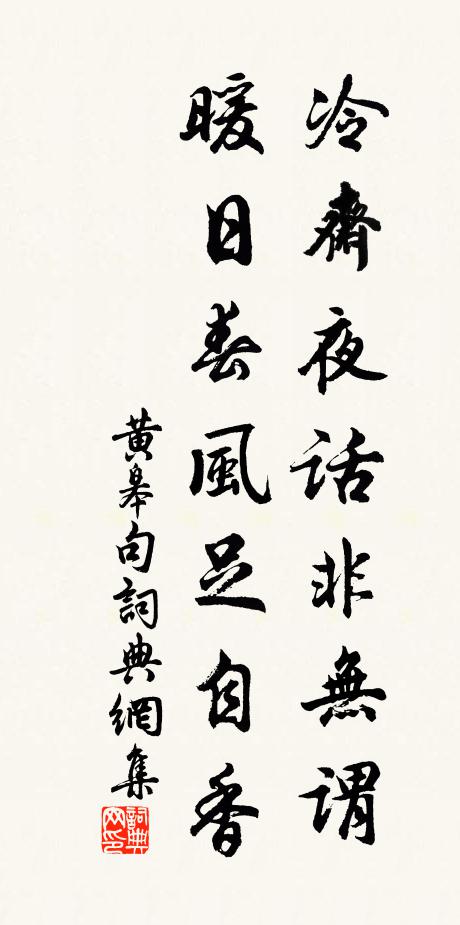 冷齋夜話非無謂
暖日春風足自香
黃皋句詞典網集
詞典网印